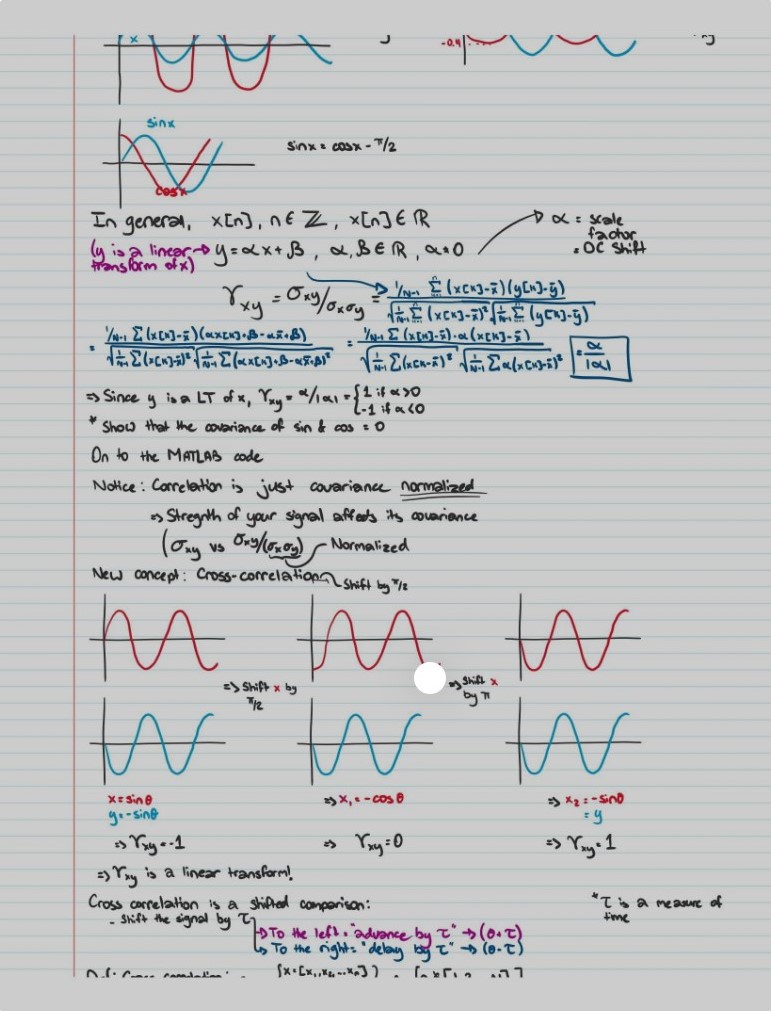 x
-0.4
y
sinx
sinx = cosx - π/2
cosx
In general, x[n], n ∈ ℤ, x[n] ∈ ℝ
α = scale
factor
= DC shift
(y is a linear
transform of x)
y = αx + β, α, β ∈ ℝ, α ≠ 0
r_xy = σ_xy/σ_xσ_y = 1/N-1 Σ (x[n]-x̄)(y[n]-ȳ) / √(1/N-1 Σ (x[n]-x̄)²) √(1/N-1 Σ (y[n]-ȳ))
= 1/N-1 Σ (x[n]-x̄)(αx[n]+β-αx̄+β) / √(1/N-1 Σ(x[n]-x̄)²) √(1/N-1 Σ(αx[n]+β-αx̄+β)²) = 1/N-1 Σ (x[n]-x̄)·α(x[n]-x̄) / √(1/N-1 Σ(x[n-x̄)²) √(1/N-1 Σα(x[n]-x̄)²) = α/|α|
⇒ Since y is a LT of x, r_xy = α/|α| = { 1 if α>0
-1 if α<0
* Show that the covariance of sin & cos = 0
On to the MATLAB code
Notice: Correlation is just covariance normalized
⇒ Stregnth of your signal affects its covariance
(σ_xy vs σ_xy/(σ_xσ_y) Normalized
New concept: Cross-correlation
Shift by π/2
⇒ Shift x by
π/2
⇒ Shift x
by π
x = sinθ
y = -sinθ
⇒ x₁ = -cosθ
⇒ x₂ = -sinθ
= y
⇒ r_xy = -1
⇒ r_xy = 0
⇒ r_xy = 1
⇒ r_xy is a linear transform!
Cross correlation is a shifted comparison:
- Shift the signal by τ
* τ is a measure of
time
→ To the left = "advance by τ" → (θ + τ)
→ To the right = "delay by τ" → (θ - τ)